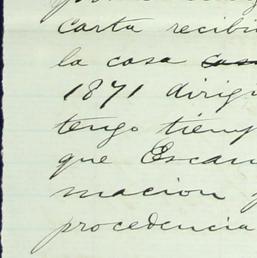 carta recibi
la casa
1871 dirig
tengo tiemp
que Escan
macion
procedencia